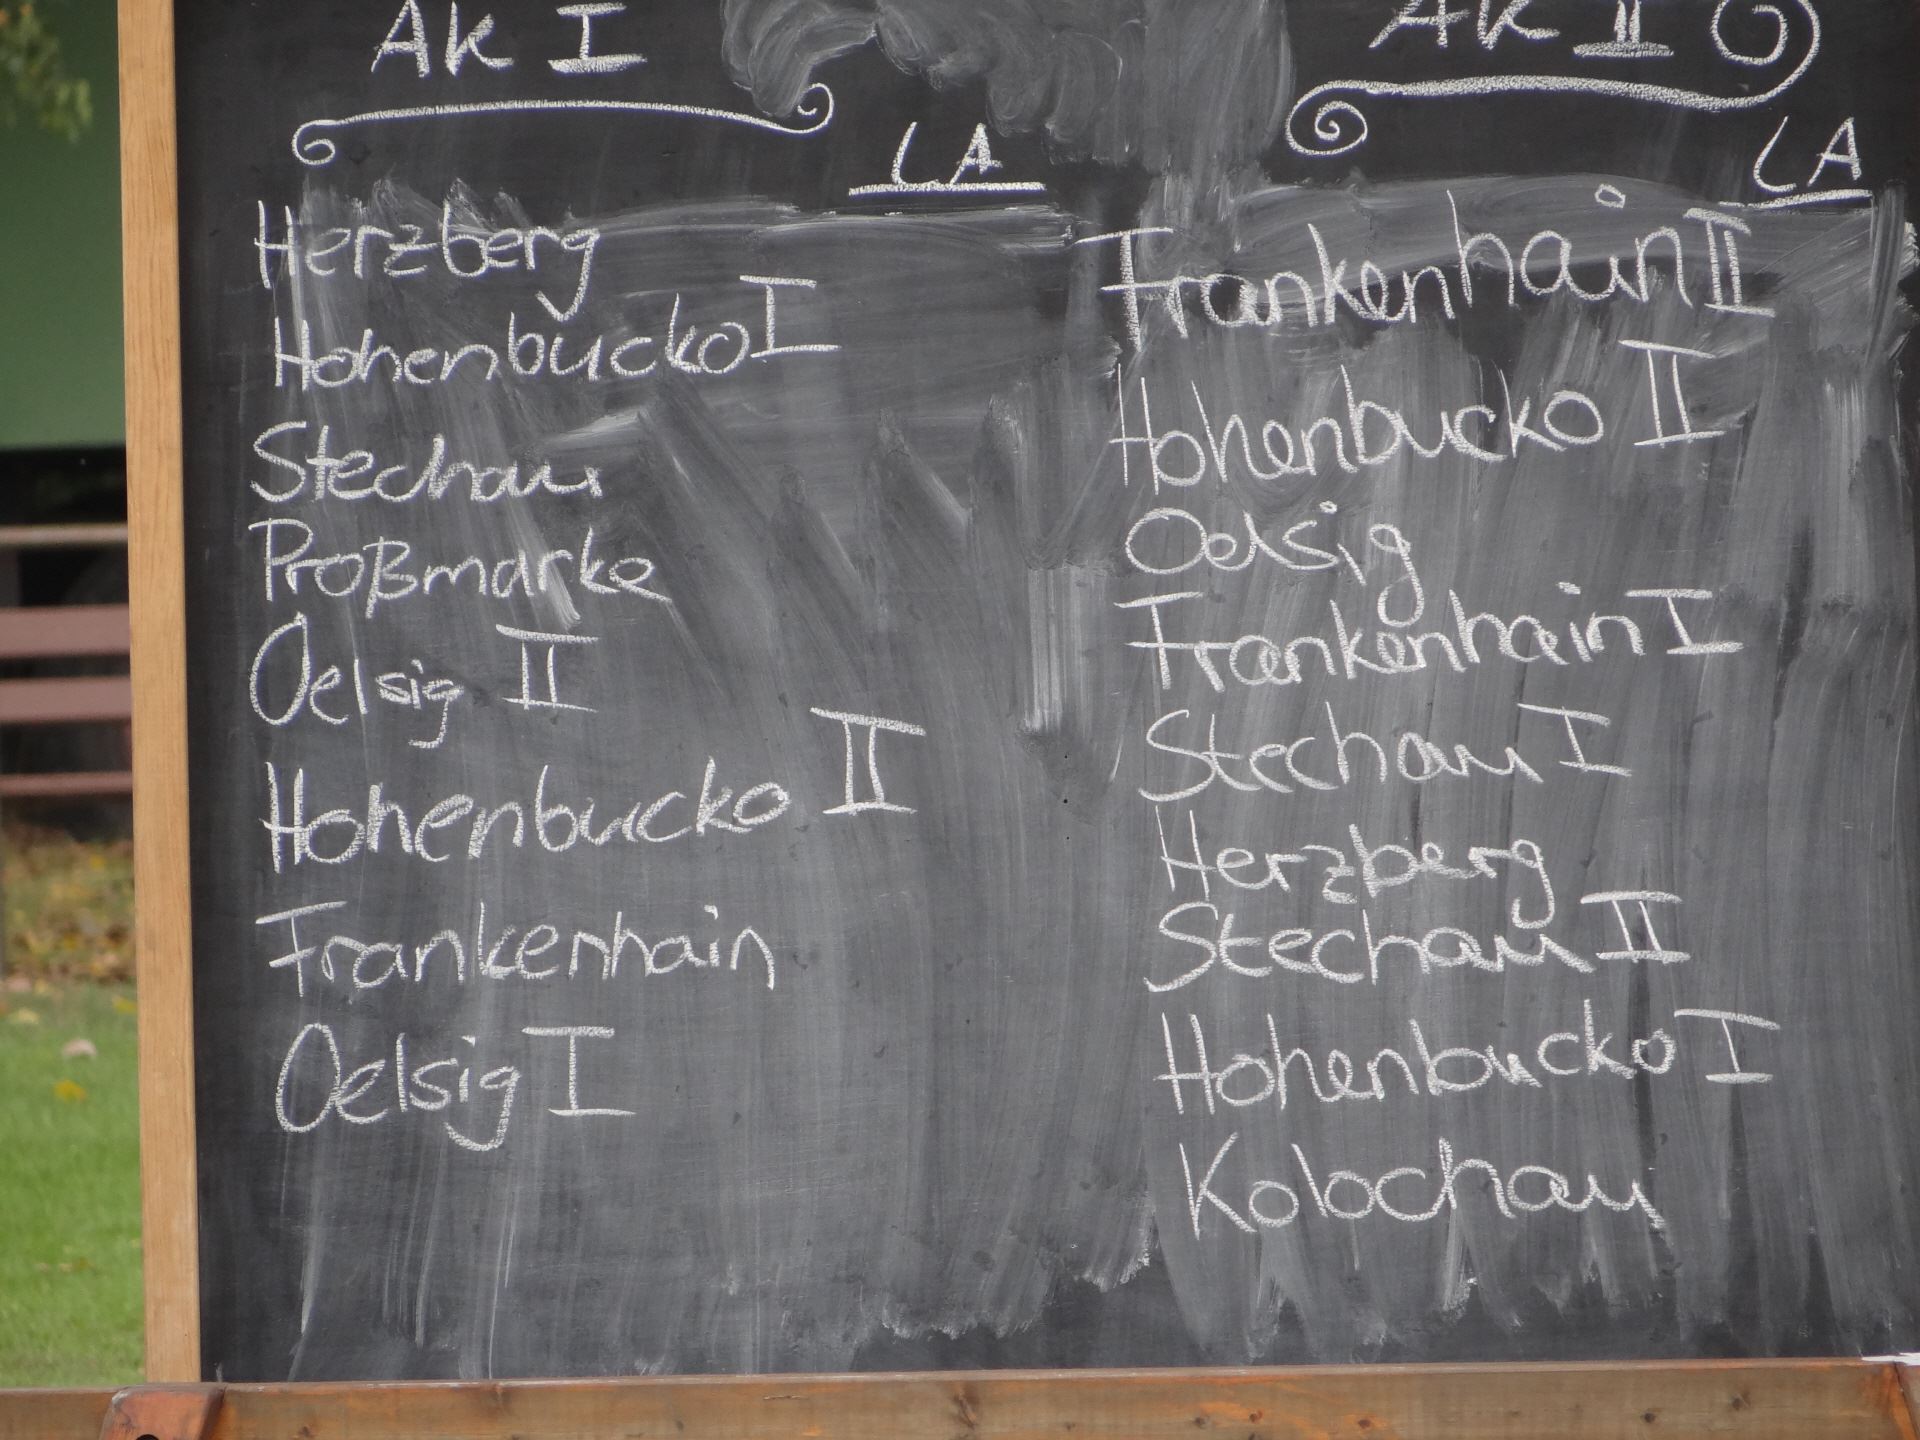 AK I
LA
Herzberg
Hohenbucko I
Stechau
Proßmarke
Oelsig II
Hohenbucko II
Frankenhain
Oelsig I
AK II
LA
Frankenhain II
Hohenbucko II
Oelsig
Frankenhain I
Stechau I
Herzberg
Stechau II
Hohenbucko I
Kolochau